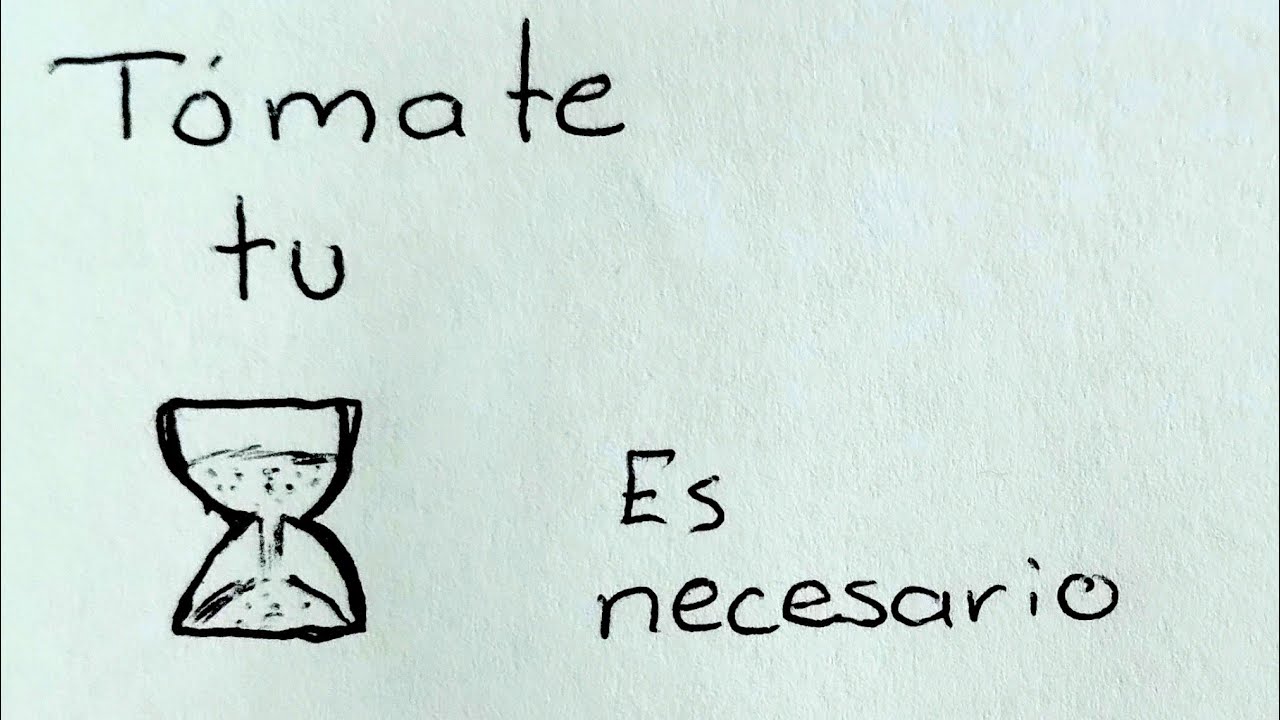 Tómate
tu
Es
necesario